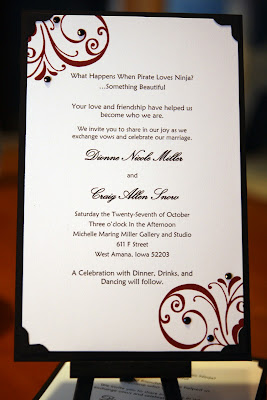 What Happens When Pirate Loves Ninja?
...Something Beautiful
Your love and friendship have helped us
become who we are.
We invite you to share in our joy as we
exchange vows and celebrate our marriage.
Dionne Nicole Miller
and
Craig Allen Snow
Saturday the Twenty-Seventh of October
Three o'clock In the Afternoon
Michelle Maring Miller Gallery and Studio
611 F Street
West Amana, Iowa 52203
A Celebration with Dinner, Drinks, and
Dancing will follow.